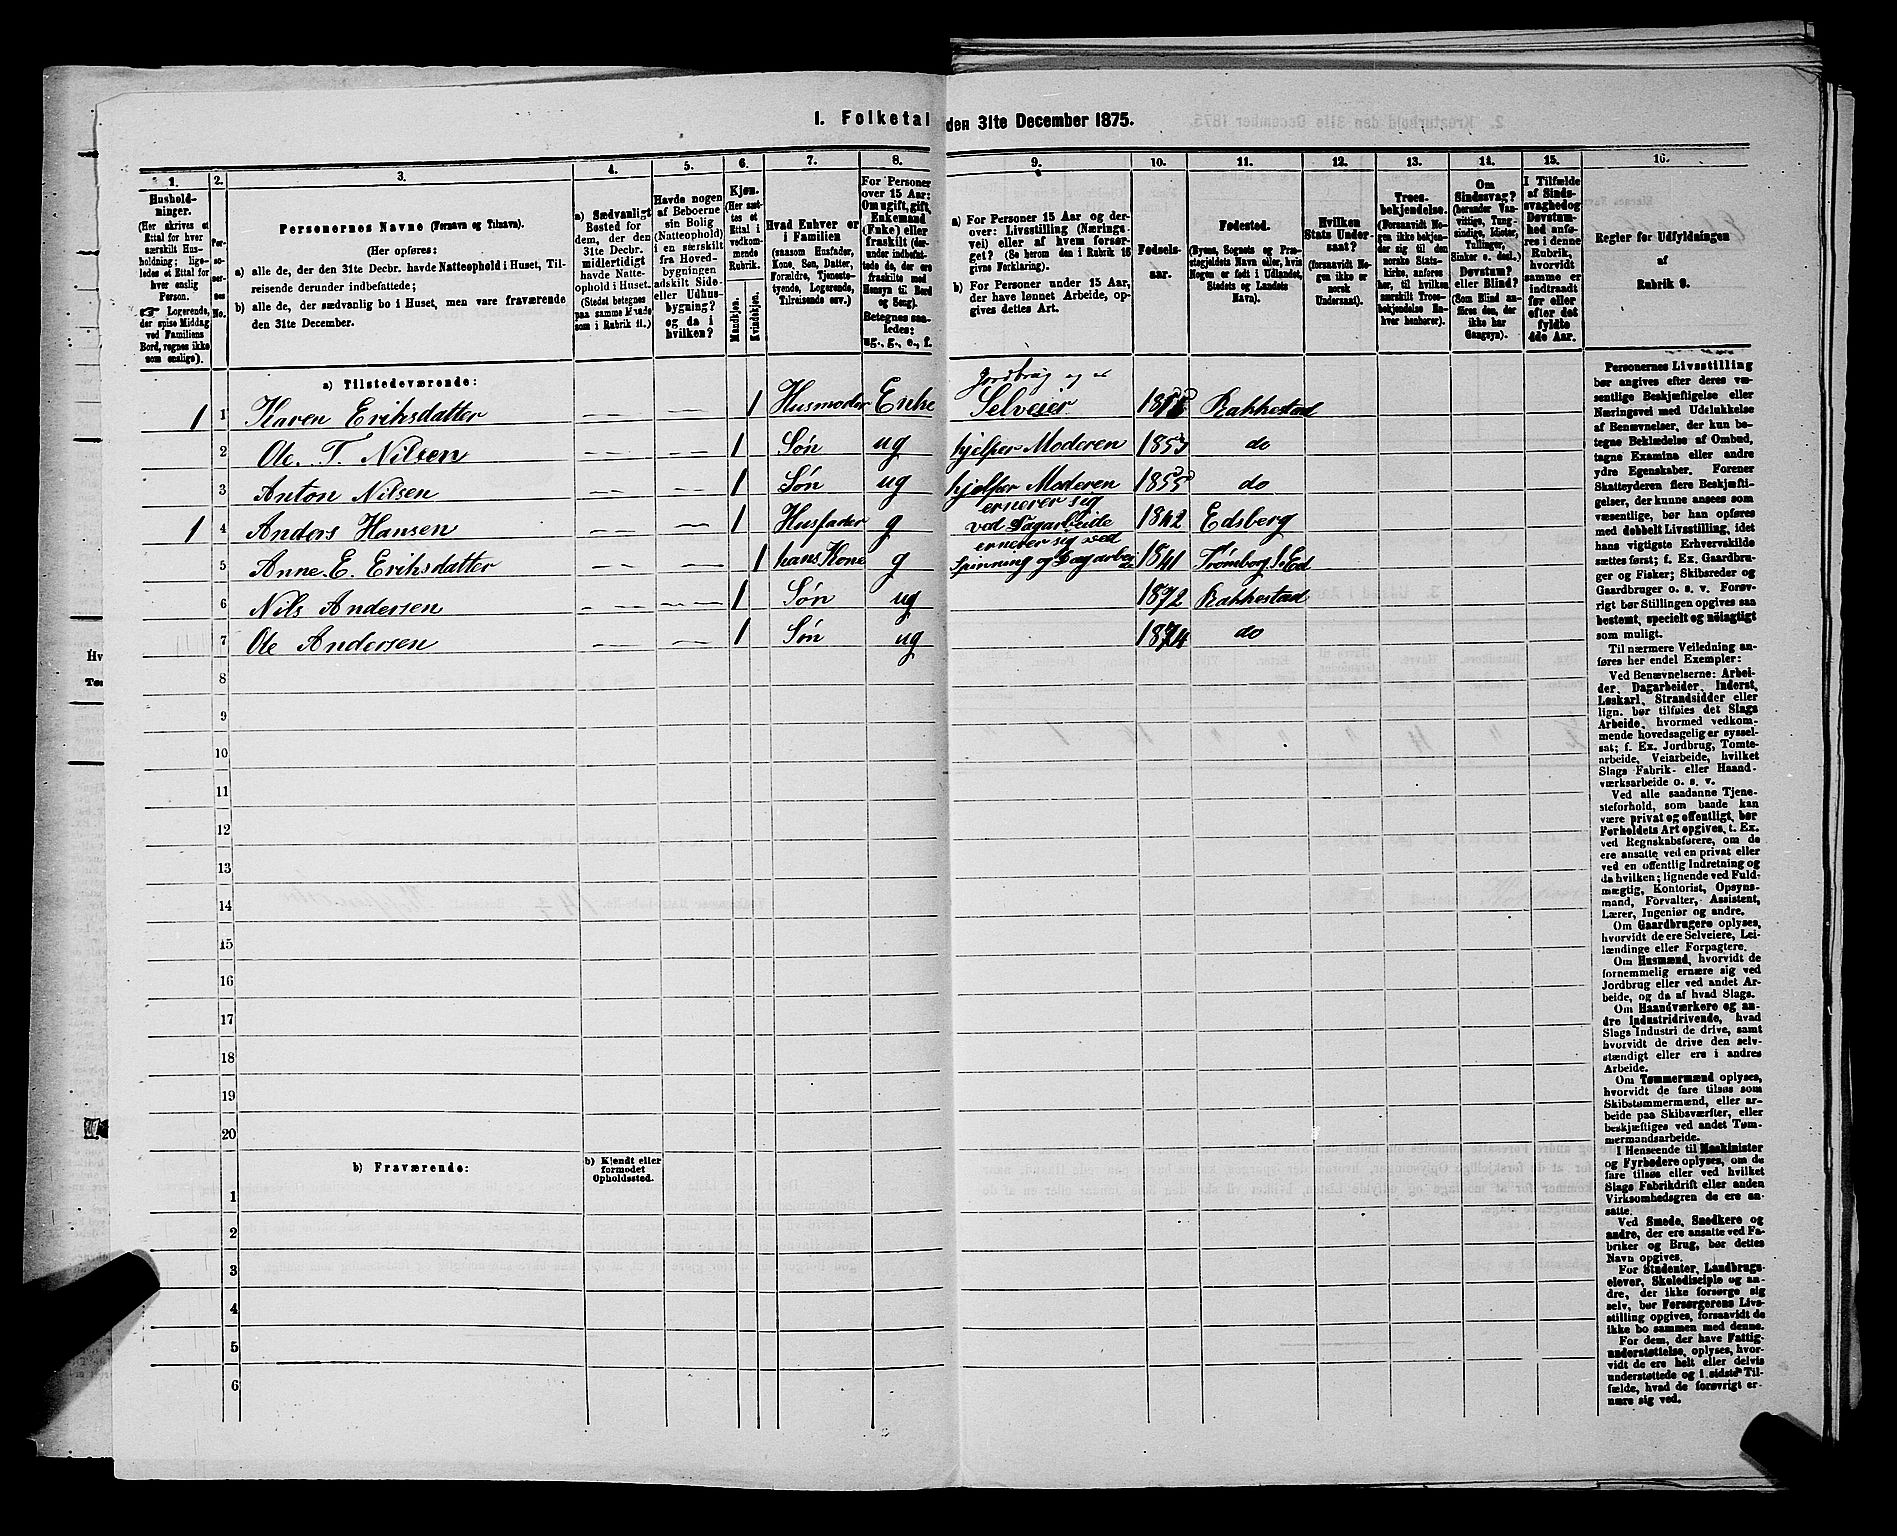 I. Folketal den 31te December 1875.
1.
2.
3.
4.
5.
6.
7.
8.
9.
10.
11.
12.
13.
14.
15.
16.
Hushold-
ninger.
(Her skrives et
Ettal for hver
særskilt Hus-
holdning; lige-
ledes et Ettal for
hver enslig
Person.
☞ Logerende,
der spise Middag
ved Familiens
Bord, regnes ikke
som enslige).
Per-
so-
ner-
nes
No.
Personernes Navne (Fornavn og Tilnavn).
(Her opføres:
a) alle de, der den 31te Decbr. havde Natteophold i Huset, Til-
reisende derunder indbefattede;
b) alle de, der sædvanlig bo i Huset, men vare fraværende
den 31te December.
a) Sædvanligt
Bosted for
dem, der den
31te Decbr.
midlertidigt
havde Natte-
ophold i Huset.
(Stedet betegnes
paa samme Maade
som i Rubrik 11.)
Havde nogen
af Beboerne
sin Bolig
(Natteophold)
i en særskilt
fra Hoved-
bygningen
adskilt Side-
eller Udhus-
bygning?
og da i
hvilken?
Kjøn.
(Her sæt-
tes et
Ettal i
vedkom-
mende
Rubrik.
Mandkjøn.
Kvindekjøn.
Hvad Enhver er
i Familien
(saasom Husfader,
Kone, Søn, Datter,
Forældre, Tjeneste-
tyende, Logerende,
Tilreisende osv.)
For Personer
over 15 Aar:
Om ugift, gift,
Enkemand
(Enke) eller
fraskilt (der-
under indbefat-
tede de, der ere
fraskilte med
Hensyn til Bord
og Seng).
Betegnes saa-
ledes:
ug., g., e., f.
a) For Personer 15 Aar og der-
over: Livsstilling (Nærings-
vei) eller af hvem forsør-
get? (Se herom den i Rubrik 16
givne Forklaring).
b) For Personer under 15 Aar,
der have lønnet Arbeide, op-
gives dettes Art.
Fødsels-
aar.
Fødested.
(Byens, Sognets og Præ-
stegjeldets Navn eller, hvis
Nogen er født i Udlandet,
Stedets og Landets
Navn).
Hvilken
Stats Under-
saat?
(forsaavidt No-
gen ikke er
norsk
Undersaat).
Troes-
bekjendelse.
(Forsaavidt No-
gen ikke bekjen-
der sig til den
norske Stats-
kirke, anføres
her, til hvilken
særskilt Troes-
bekjendelse En-
hver henhører).
Om
Sindssvag?
(herunder Van-
vittige, Tung-
sindige, Idioter,
Tullinger,
Sinker o. desl.)
Døvstum?
eller Blind?
(Som Blind an-
føres den, der
ikke har
Gangsyn).
I Tilfælde
af Sinds-
svaghed og
Døvstum-
hed anfø-
res i denne
Rubrik,
hvorvidt
samme er
indtraadt
før eller
efter det
fyldte
4de Aar.
Regler for Udfyldningen
af
Rubrik 9.
a) Tilstedeværende:
1 1 Karen Eriksdatter — — — — 1 Husmoder Enke Jordbrug og Selveier Rakkestad
2 Ole. T. Nilsen — — — — 1 Søn ug hjelper Moderen 1853 do
3 Anton Nilsen — — — — 1 Søn ug hjelper Moderen 1855 do
1 4 Anders Hansen — — — — 1 Husfader g ernerer sig ved Dagarbeide 1842 Edsberg
5 Anne. E. Eriksdatter — — — — 1 hans Kone g ernerer sig ved Spinning og Dagarbeide 1841 Trømborg
6 Nils Andersen — — — — 1 Søn ug 1872 Rakkestad
7 Ole Andersen — — — — 1 Søn ug 1874 do
8
9
10
11
12
13
14
15
16
17
18
19
20
b) Fraværende:
b) Kjendt eller
formodet
Opholdssted.
1
2
3
4
5
6
Personernes Livsstilling
bør angives efter deres væ-
sentlige Beskjæftigelse eller
Næringsvei med Udelukkelse
af Benævnelser, der kun be-
tegne Beklædelse af Ombud,
tagne Examina eller andre
ydre Egenskaber. Forener
Skatteyderen flere Beskjæfti-
gelser, der kunne ansees som
væsentlige, bør han opføres
med dobbelt Livsstilling, idet
hans vigtigste Erhvervskilde
sættes først; f. Ex. Gaardbru-
ger og Fisker; Skibsreder og
Gaardbruger o. s. v. Forøv-
rigt bør Stillingen opgives saa
bestemt, specielt og nøiagtigt
som muligt.
Til nærmere Veiledning an-
føres her endel Exempler:
Ved Benævnelserne: Arbei-
der, Dagarbeider, Inderst,
Løskarl, Strandsidder eller
lign. bør tilføies det Slags
Arbeide, hvormed vedkom-
mende hovedsagelig er syssel-
sat; f. Ex. Jordbrug, Tomte-
arbeide, Veiarbeide, hvilket
Slags Fabrik- eller Haand-
værksarbeide o. s. v.
Ved alle saadanne Tjene-
steforhold, som baade kan
være privat og offentligt, bør
Forholdets Art opgives, t. Ex.
ved Regnskabsførere, om de
ere ansatte ved en privat eller
ved en offentlig Indretning og
da hvilken; lignende ved Fuld-
mægtig, Kontorist, Opsyns-
mand, Forvalter, Assistent,
Lærer, Ingeniør og andre.
Om Gaardbrugere oplyses,
hvorvidt de ere Selveiere, Lei-
lændinge eller Forpagtere.
Om Husmænd, hvorvidt de
fornemmelig ernære sig ved
Jordbrug eller ved andet Ar-
beide, og da af hvad Slags.
Om Haandværkere og an-
dre Industridrivende, hvad
Slags Industri de drive, samt
hvorvidt de drive den selv-
stændigt eller ere i andres
Arbeide.
Om Tømmermænd oplyses,
hvorvidt de fare tilsøs som
Skibstømmermænd, eller ar-
beide paa Skibsværfter, eller
beskjæftiges ved andet Tøm-
mermandsarbeide.
I Henseende til Maskinister
og Fyrbødere oplyses, om de
fare tilsøs eller ved hvilket
Slags Fabrikdrift eller anden
Virksomhedsgren de ere an-
satte.
Ved Smede, Snedkere og
andre, der ere ansatte ved Fa-
briker og Brug, bør dettes
Navn opgives.
For Studenter, Landbrugs-
elever, Skoledisciple og an-
dre, der ikke forsørge sig
selv, bør Forsørgerens Livs-
stilling opgives, forsaavidt de
ikke bo sammen med denne.
For dem, der have Fattig-
understøttelse, oplyses, hvor-
vidt de ere helt eller delvis
understøttede og i sidste Til-
fælde, hvad de forøvrigt er-
nære sig ved.